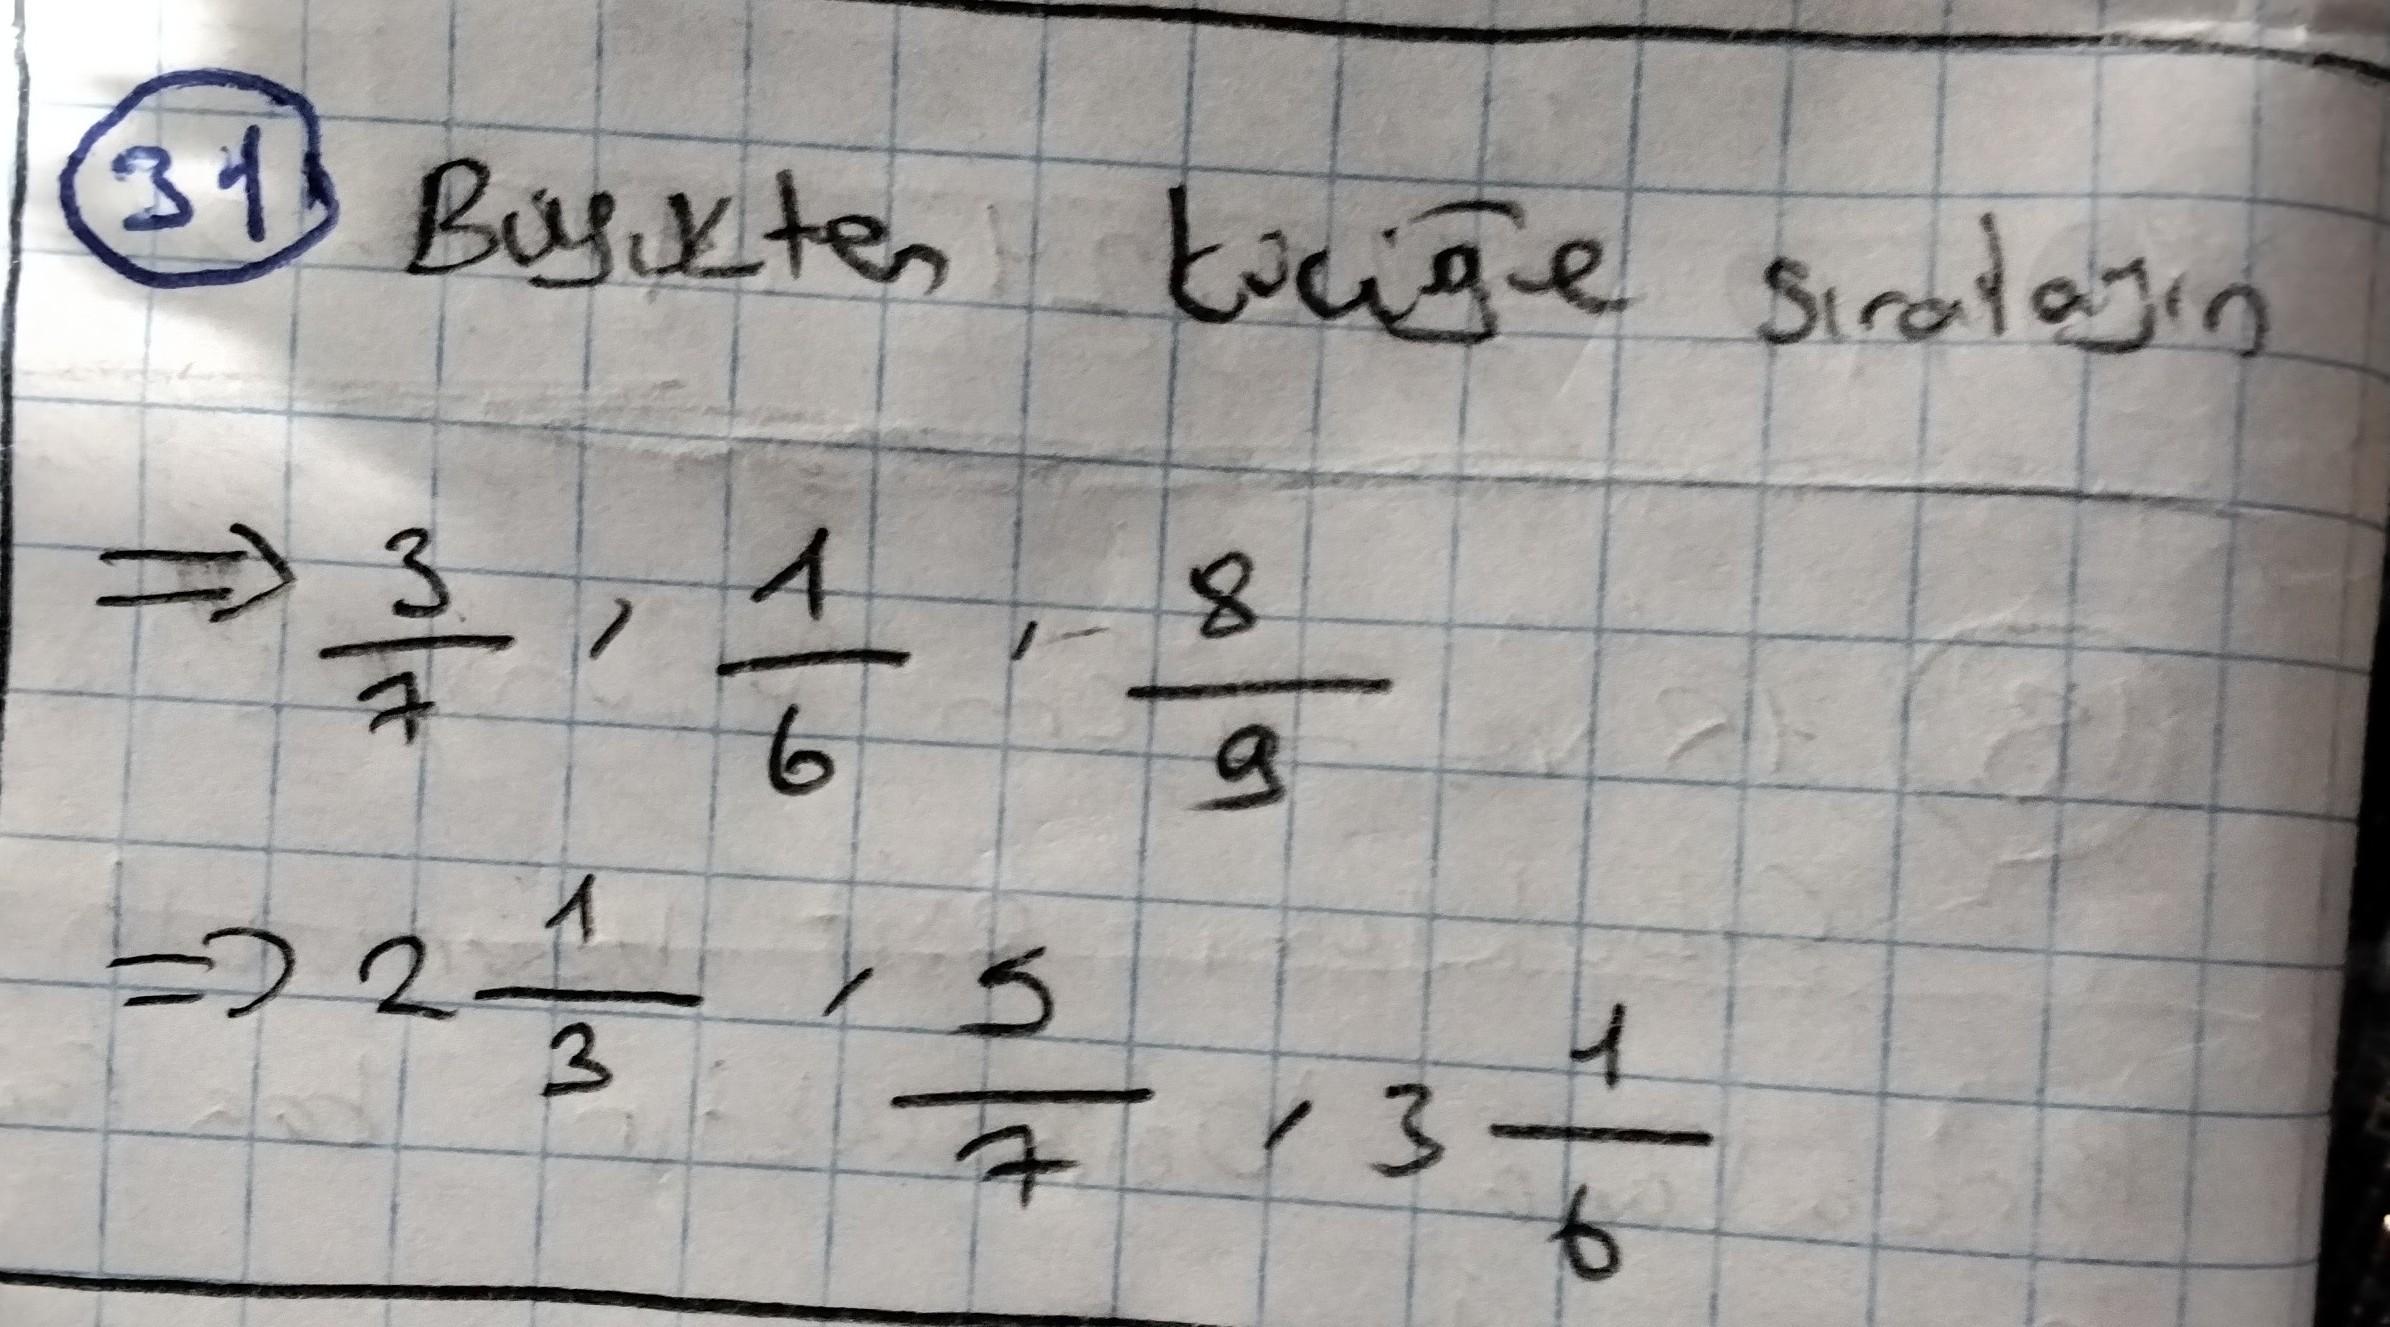 31 Büyükten küçüğe sıralayın
⇒ 3/7 , 1/6 , 8/9
⇒ 2 1/3 , 5/7 , 3 1/6